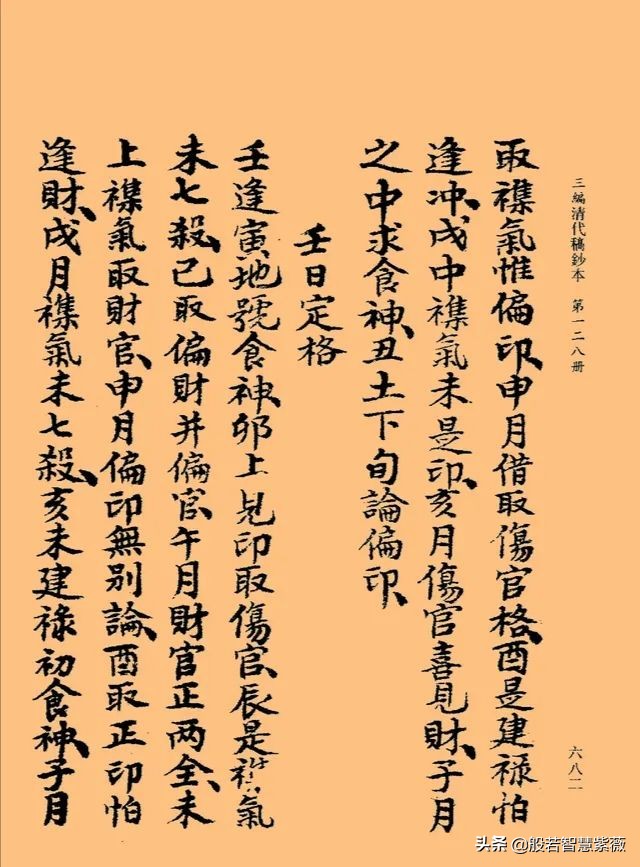 三編清代稿鈔本 第一二八册
取襍氣惟偏印、申月借取傷官格、酉是建祿怕
逢冲、戌中襍氣未是印、亥月傷官喜見財、子月
之中求食神、丑土下旬論偏印、
壬日定格
壬逢寅地號食神、卯上見印取傷官、辰是襍氣
未七殺、巳取偏財并偏官、午月財官正两全、未
上襍氣取財官、申月偏印無别論、酉取正印怕
逢財、戌月襍氣未七殺、亥未建祿初食神、子月
六八二
头条 @般若智慧紫薇